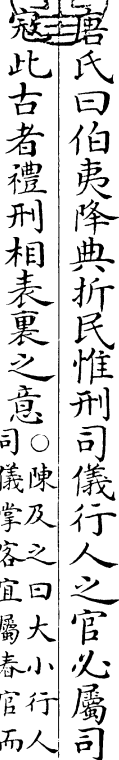 唐氏曰伯夷降典折民惟刑司儀行人之官必屬司
寇此古者禮刑相表裏之意○陳及之曰大小行人
司儀掌客宜屬春官而